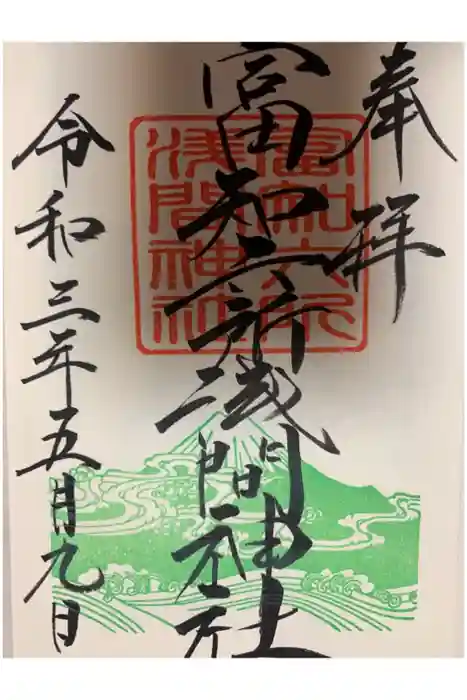 奉拝
富知六所浅間神社
令和三年五月九日
富知六所
浅間神社